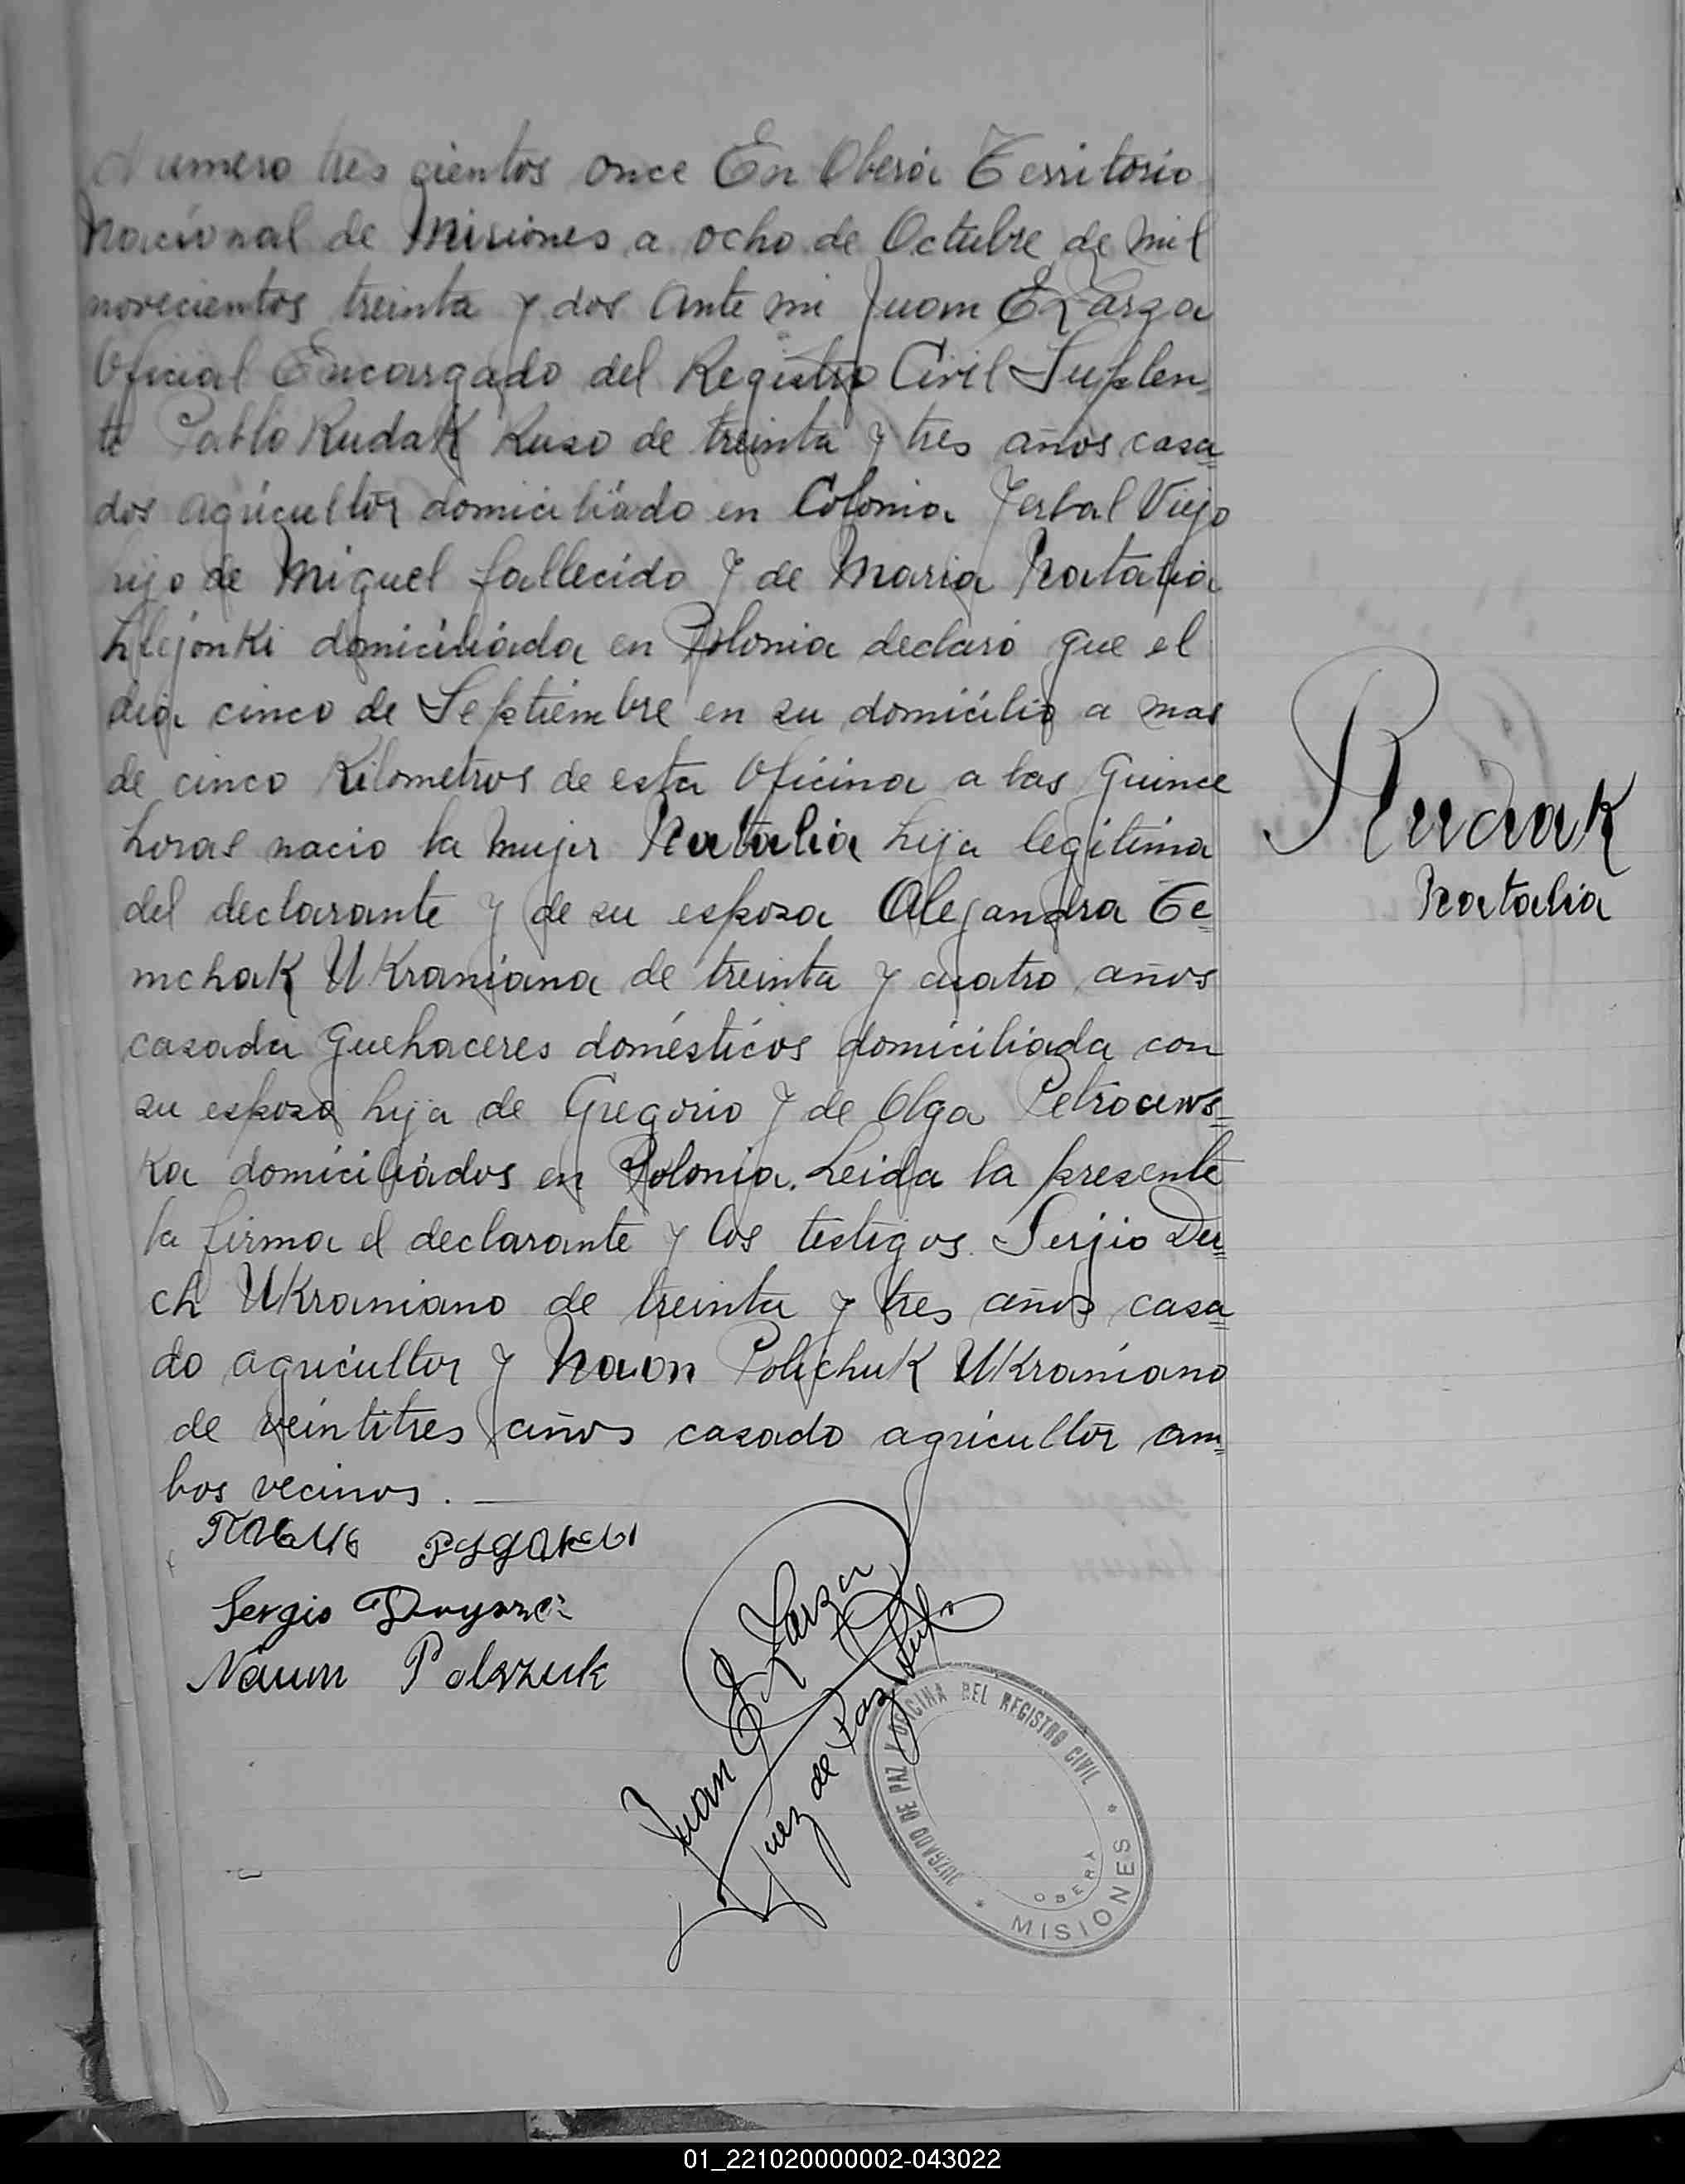 Numero tres cientos once En Oberá Territorio
Nacional de Misiones a ocho de Octubre de mil
novecientos treinta y dos Ante mi Juan E Larza
Oficial Encargado del Registro Civil Suplen=
te Pablo Rudak Ruso de treinta y tres años casa=
dos agricultor domiciliado en Colonia Yerbal Viejo
hijo de Miguel fallecido y de Maria Natalia
domiciliada en Polonia declaró que el
dia cinco de Septiembre en su domicilio a mas
de cinco Kilometros de esta Oficina a las quince
horas nacio la mujer Natalia hija legitima
del declarante y de su esposa Alejandra Te=
mchak Ukraniana de treinta y cuatro años
casada quehaceres domésticos domiciliada con
su esposo hija de Gregorio y de Olga
domiciliados en Polonia. Leida la presente
la firma el declarante y los testigos. Serjio Du=
ch Ukraniano de treinta y tres años casa=
do agricultor y Naon Polichuk Ukraniano
de veintitres años casado agricultor am=
bos vecinos. —
Rudak
Natalia
Sergio
Naum Polszuk
Juan E Larza
Juez de Paz Supl
JUZGADO DE PAZ Y OFICINA DEL REGISTRO CIVIL
* OBERA *
MISIONES
01_221020000002-043022